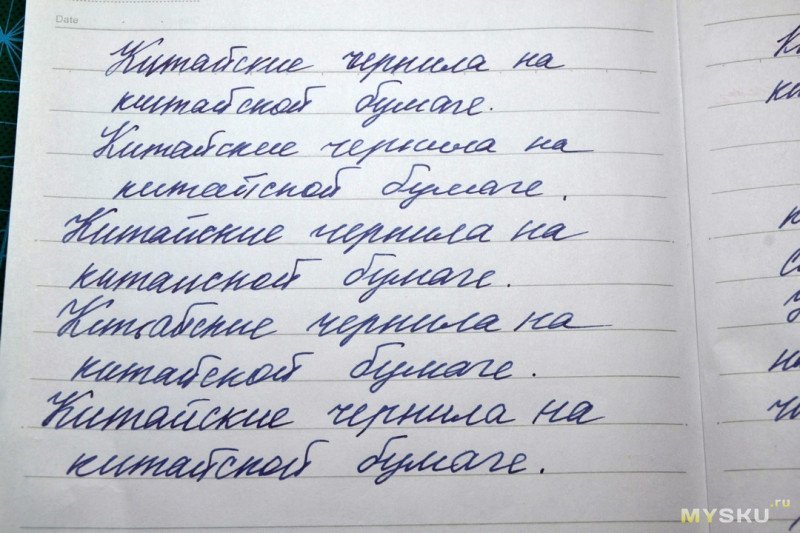 Date
Китайские чернила на
китайской бумаге.
Китайские чернила на
китайской бумаге.
Китайские чернила на
китайской бумаге.
Китайские чернила на
китайской бумаге.
Китайские чернила на
китайской бумаге.
MYSKU.ru